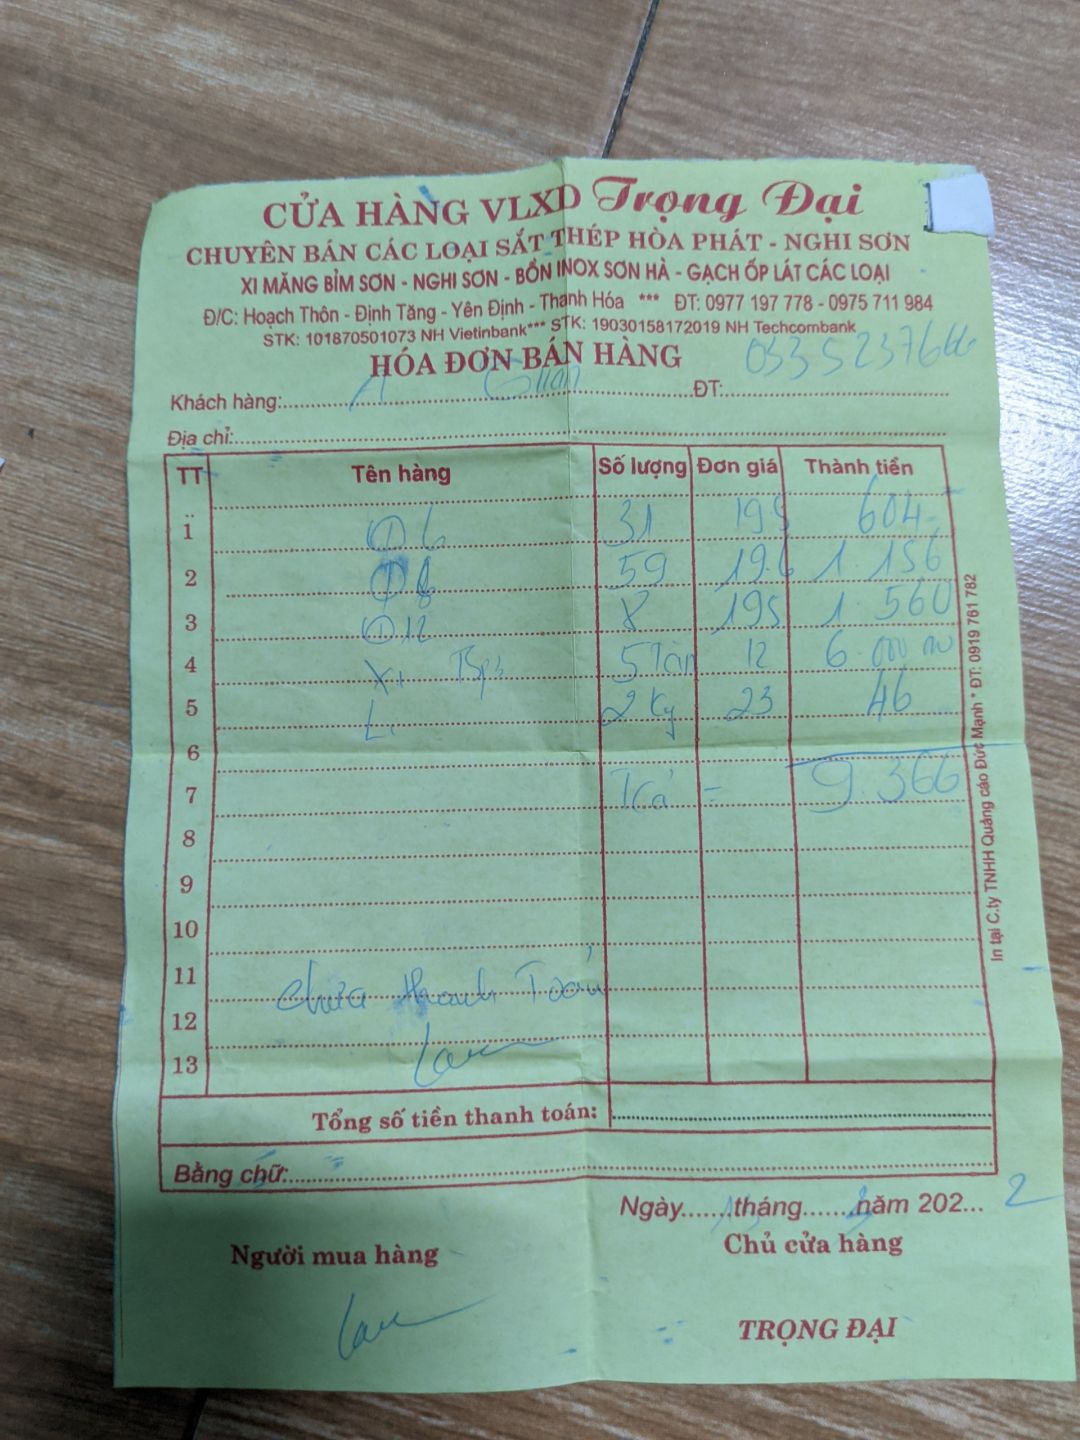 CỬA HÀNG VLXD Trọng Đại
CHUYÊN BÁN CÁC LOẠI SẮT THÉP HÒA PHÁT - NGHI SƠN
XI MĂNG BỈM SƠN - NGHI SƠN - BỒN INOX SƠN HÀ - GẠCH ỐP LÁT CÁC LOẠI
Đ/C: Hoạch Thôn - Định Tăng - Yên Định - Thanh Hóa *** ĐT: 0977 197 778 - 0975 711 984
STK: 101870501073 NH Vietinbank*** STK: 19030158172019 NH Techcombank
HÓA ĐƠN BÁN HÀNG
Khách hàng: A ĐT:
Địa chỉ:
TT Tên hàng Số lượng Đơn giá Thành tiền
1 Φ 6 31 195 604
2 Φ 8 59 19.6 1 156
3 Φ 12 8 195 1 560
4 Xi 5 Tấn 12 6 000
5 2 Kg 23 46
6
7 Trả = 9.366
8
9
10
11 chưa thanh Toán
12
13
Tổng số tiền thanh toán:
Bằng chữ:
Ngày.......tháng.......năm 202... 2
Người mua hàng Chủ cửa hàng
TRỌNG ĐẠI
In tại C.ty TNHH Quảng cáo Đức Mạnh * ĐT: 0919 761 782